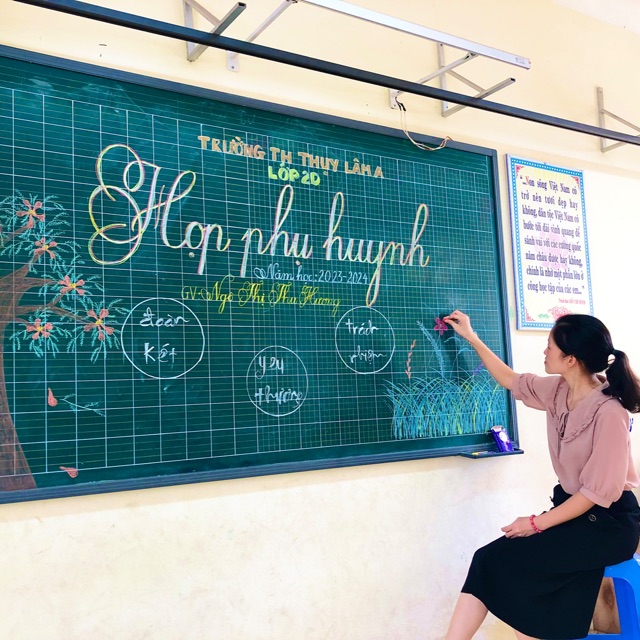 TRƯỜNG TH THỤY LÂM A
LỚP 2D
Họp phụ huynh
Năm học: 2023-2024
GV: Ngô Thị Thu Hương
đoàn
kết
yêu
thương
trách
nhiệm
"...Non sông Việt Nam có
trở nên tươi đẹp hay
không, dân tộc Việt Nam có
bước tới đài vinh quang để
sánh vai với các cường quốc
năm châu được hay không,
chính là nhờ một phần lớn ở
công học tập của các em..."